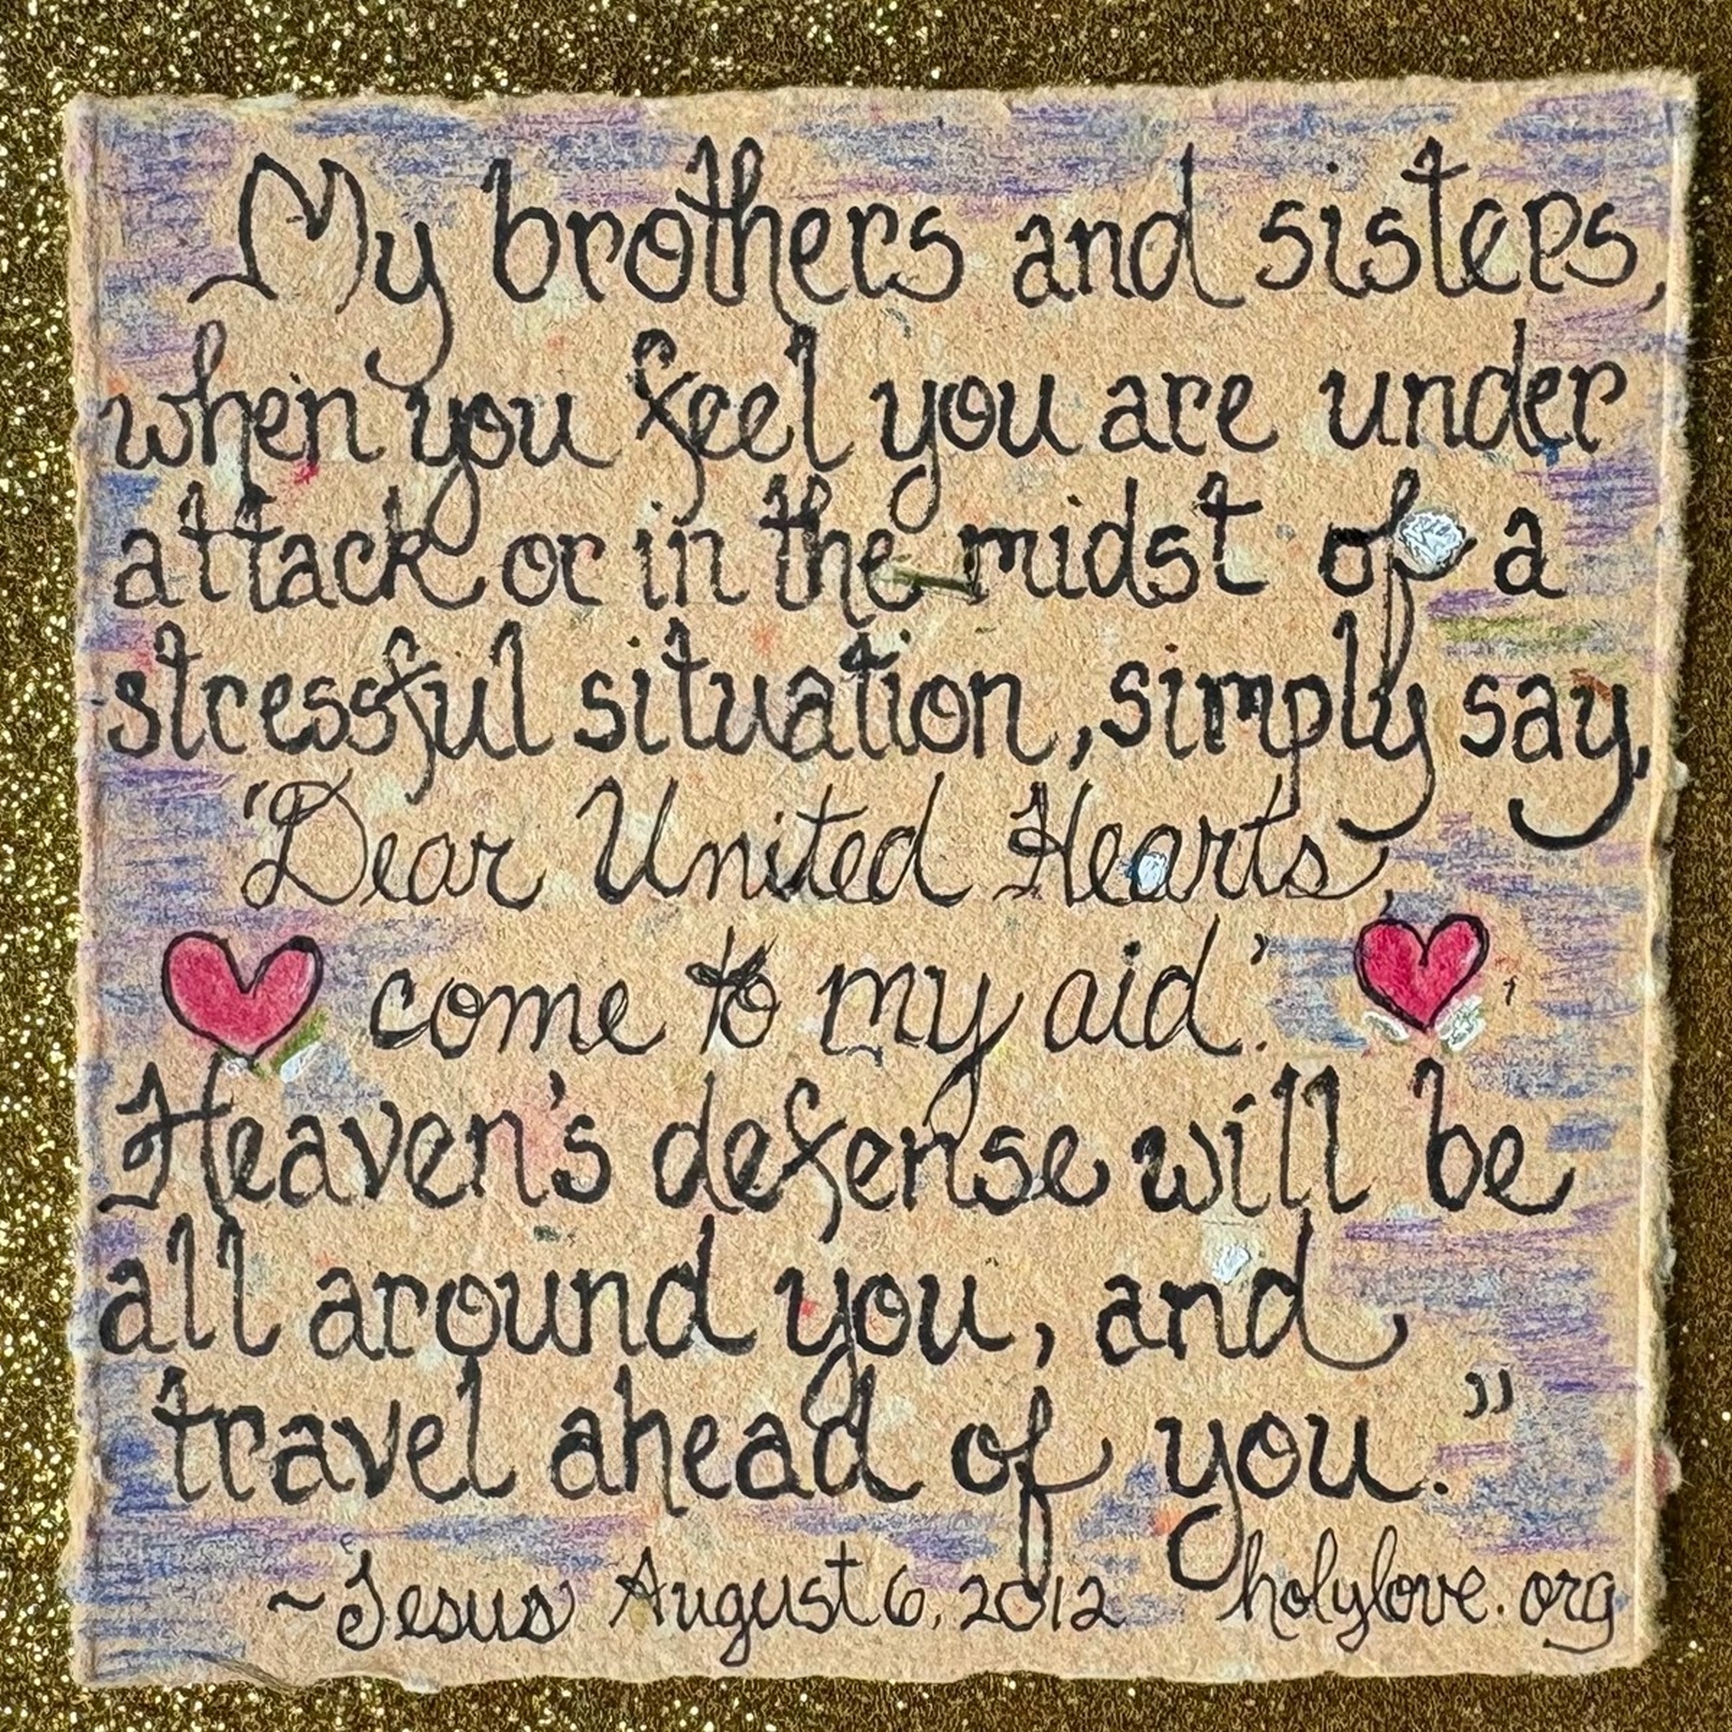 My brothers and sisters,
when you feel you are under
attack or in the midst of a
stressful situation, simply say,
'Dear United Hearts,
come to my aid.'
Heaven's defense will be
all around you, and
travel ahead of you."
~Jesus August 6, 2012 holylove.org